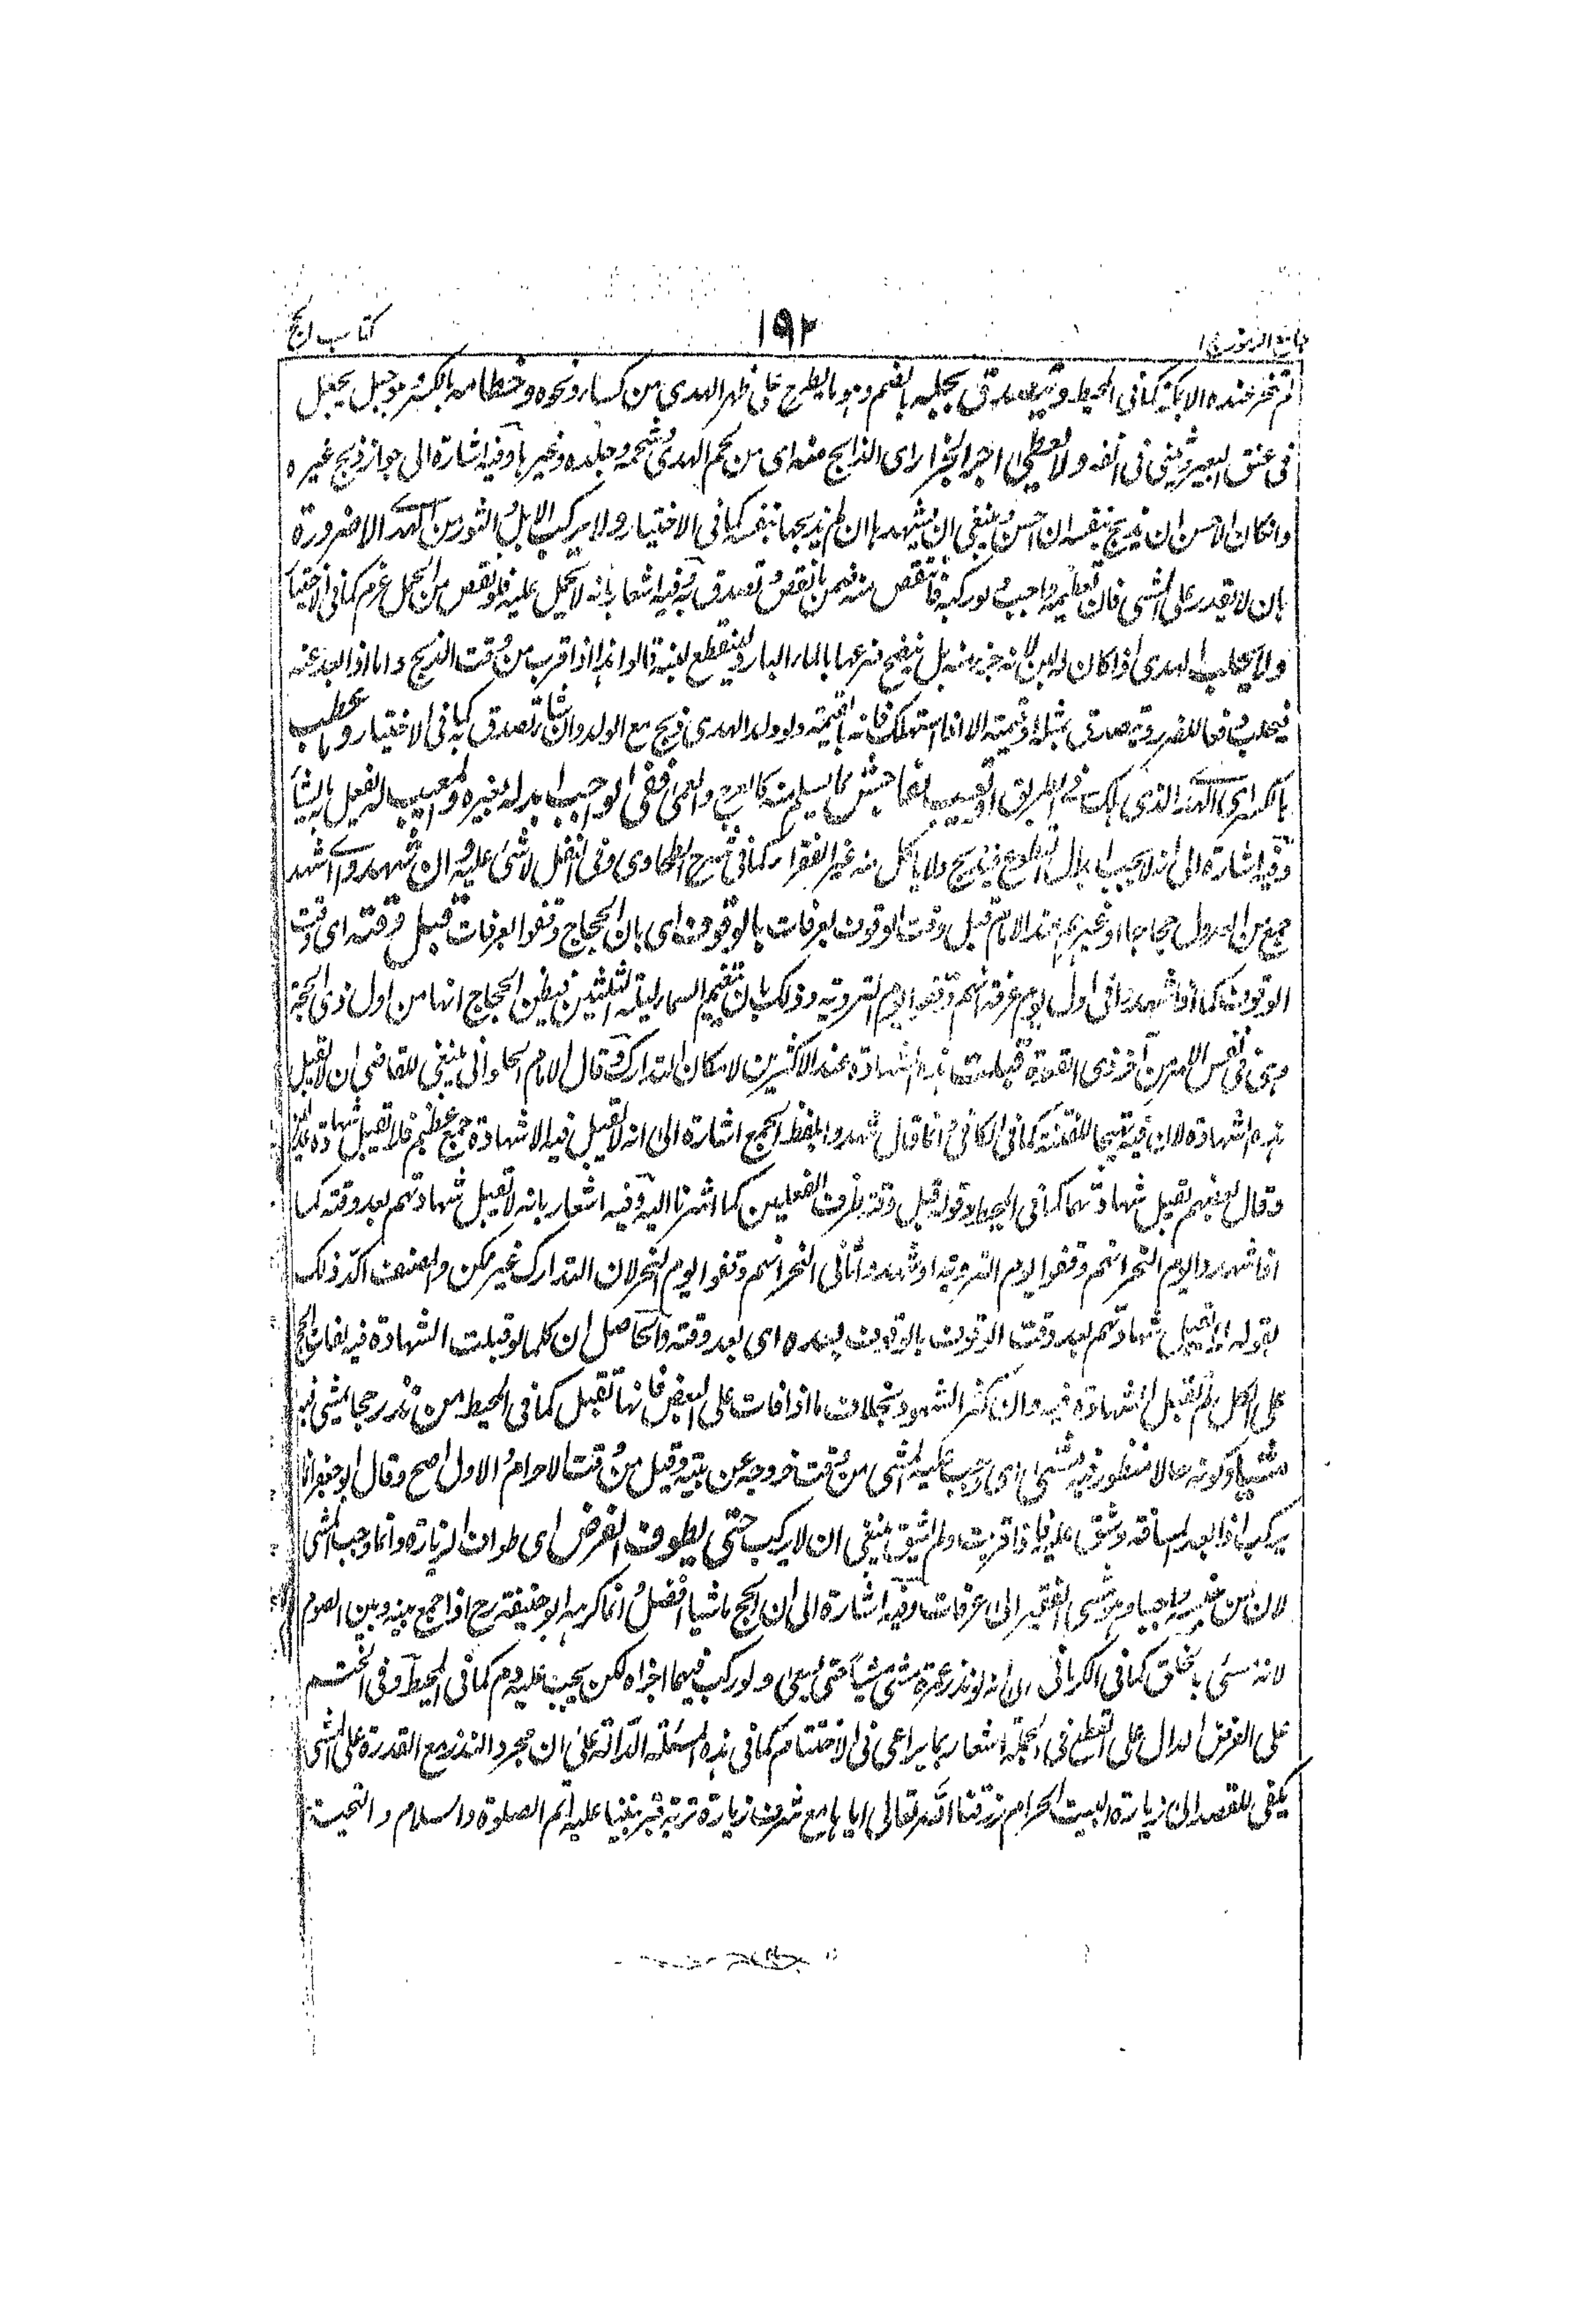 جامع الرموز ج ١
١٩٢
كتاب الحج
لم تنحر عنده الا بمكة كما فى المحيط ويتصدق بجله بالضم وهو ما يطرح على ظهر الهدى من كساء ونحوه وخطامه بالكسر هو حبل يجعل
فى عنق البعير ويثنى فى انفه ولا يعطى اجر الجزار اى الذابح منه اى من لحم الهدى وشحمه وجلده وغيرها وفيه اشارة الى جواز ذبح غيره
وانكان الاحسن ان يذبح بنفسه ان احسن وينبغى ان يشهدها ان لم يذبحها بنفسه كما فى الاختيار ولا يركب الابل والثور من الهدى الا ضرورة
بان لا يقدر على المشى فان تعظيمه واجب ولو ركبه فانتقص منه ضمن ما نقص وتصدق به وفيه اشعار بانه لا يحمل عليه فلو نقص من الحمل غرم كما فى الاختيار
ولا يحلب الهدى اذا كان له لبن لانه جزء منه بل ينضح ضرعها بالماء البارد لينقطع لبنه قالوا هذا اذا قرب من وقت الذبح واما اذا بعد عنه
فيحلب دفعا للضرر ويتصدق بمثله او قيمته الا اذا استهلك فانه بالقيمة ولو ولد الهدى ذبح مع الولد وان شاء تصدق به كما فى الاختيار وما عطب
بالكسر اى الهدى الذى هلك فى الطريق او تعيب بفاحش كما يسلم منه كالعرج والعمى ففى الواجب ابدله بغيره والمعيب له يفعل به ما يشاء
وفيه اشارة الى انه لا يجب ابدال التطوع فيذبح ولا ياكل منه غير الفقراء كما فى شرح الطحاوى وفى النفل لا شئ عليه وان شهدوا اى شهد
جمع من العدول حجاجا او غيرهم عند الامام قبل وقت الوقوف بعرفات بالوقوف اى بان الحجاج وقفوا بعرفات قبل وقته اى وقت
الوقوف كما اذا شهدوا فى اول يوم عرفة انهم وقفوا يوم التروية وذلك بان تغيم السماء ليلة الثلثين فيظن الحجاج انها من اول ذى الحجة
وهى فى نفس الامر من آخر ذى القعدة قبلت هذه الشهادة عند الاكثرين لامكان التدارك وقال الامام الحلوانى ينبغى للقاضى ان لا يقبل
هذه الشهادة لان فيه تهييجا للفتنة كما فى الكافى وانما قال شهدوا بلفظ الجمع اشارة الى انه لا يقبل فيه الا شهادة جمع عظيم فلا تقبل شهادة عدلين
وقال بعضهم تقبل شهادتهما كما فى المحيط وقوله قبل وقته ظرف الفعلين كما اشرنا اليه وفيه اشعار بانه لا تقبل شهادتهم بعد وقته كما
اذا شهدوا يوم النحر انهم وقفوا يوم التروية او شهدوا ثانى النحر انهم وقفوا يوم النحر لان التدارك غير ممكن والمصنف اكد ذلك
بقوله لا تقبل شهادتهم بعد وقت الوقوف بالوقوف بعده اى بعد وقته والحاصل ان كلما لو قبلت الشهادة فيه لفات الحج
على الكل لم تقبل الشهادة فيه وان كثر الشهود بخلاف ما اذا فات على البعض فانها تقبل كما فى المحيط من نذر حجا يمشى فيه
مشيا وكونه حالا منظور فيه مشى اى وجب عليه المشى من وقت خروجه عن بيته وقيل من وقت الاحرام والاول اصح وقال ابو جعفر انما
يركب اذا بعد المسافة وشق عليه فاذا قربت ولم يشق ينبغى ان لا يركب حتى يطوف الفرض اى طواف الزيارة وانما وجب المشى
لان من جنسه واجبا وهو مشى الفقير الى عرفات وفيه اشارة الى ان الحج ماشيا افضل وانما كرهه ابو حنيفة رح اذا جمع بينه وبين الصوم
لانه سئ بالخلق كما فى الكرمانى والى انه لو نذر عمرة مشى شيا حتى يسعى ولو ركب فيهما اجزاه لكن يجب عليه دم كما فى المحيط وفى الختم
على الفرض الدال على القطع فى الجملة اشعار بما يراعى فى الاختتام كما فى هذه المسئلة الدالة على ان مجرد النذر مع القدرة على المشى
يكفى للقصد الى زيارة البيت الحرام رزقنا الله تعالى اياها مع شرف زيارة تربة قبر نبينا عليه اتم الصلوة والسلام والتحية